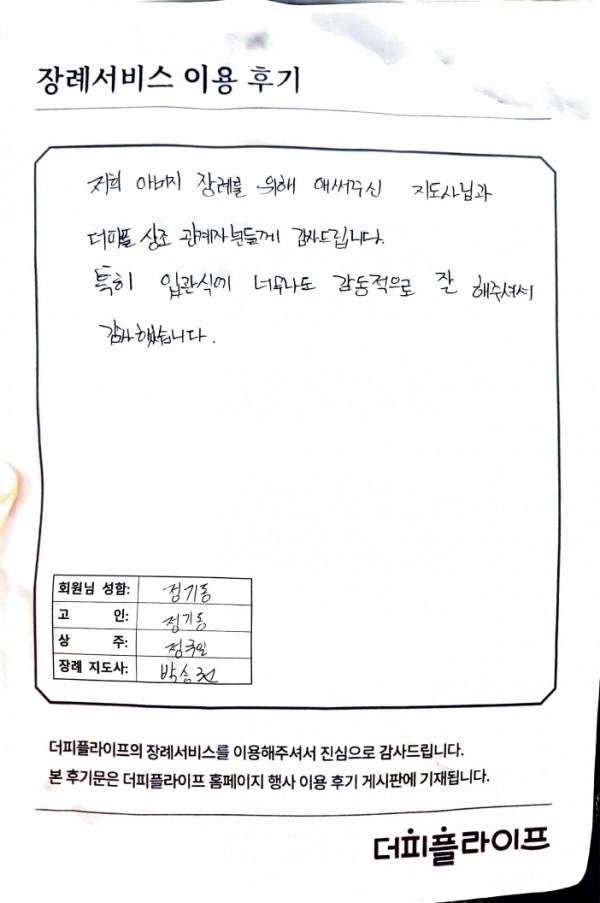 장례서비스 이용 후기
저희 아버지 장례를 위해 애써주신 지도사님과
더피플 상조 관계자분들께 감사드립니다.
특히 입관식에 너무나도 감동적으로 잘 해주셔서
감사했습니다.
회원님 성함: 정기동
고 인: 정기동
상 주:
장례 지도사: 박승
더피플라이프의 장례서비스를 이용해주셔서 진심으로 감사드립니다.
본 후기문은 더피플라이프 홈페이지 행사 이용 후기 게시판에 기재됩니다.
더피플라이프